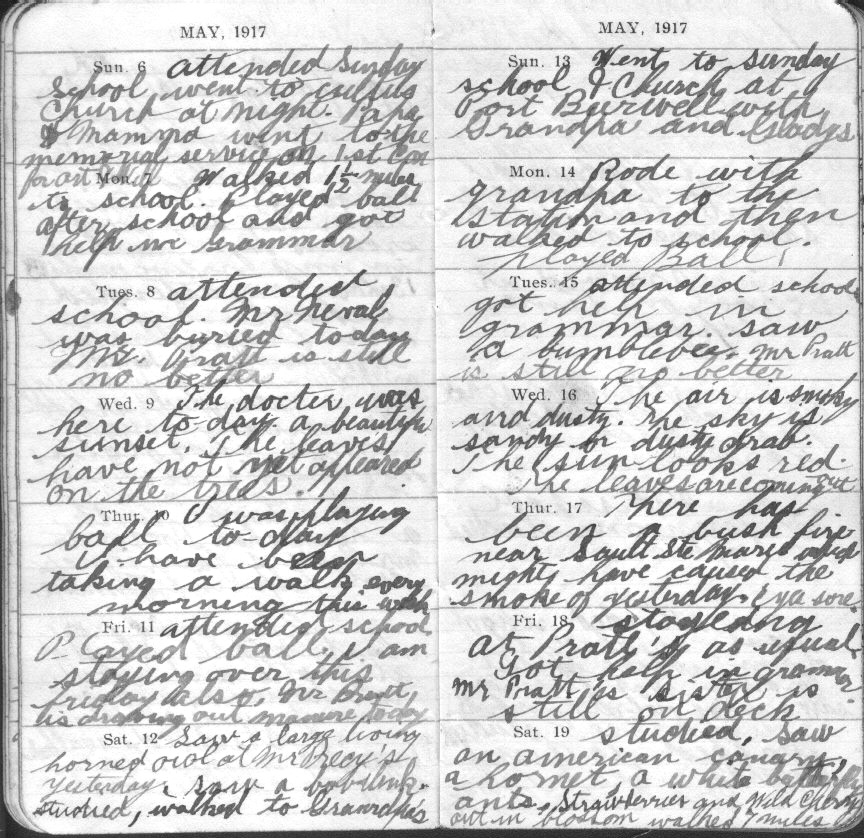 MAY, 1917
Sun. 6 attended Sunday
School went to cultus
Church at night. Papa
& Mamma went to the
memorial service on 1st Con
for art
Mon. 7 Walked 1 1/2 miles
to school. Played ball
after school and got
help in Grammar
Tues. 8 attended
school. Mr Neval
was buried today
Mr. Pratt is still
no better
Wed. 9 The docter was
here to-day. a beautiful
sunset. The leaves
have not yet appeared
on the trees.
Thur. 10 I was playing
ball to-day
I have been
taking a walk every
morning this week
Fri. 11 attended school
Played ball. I am
staying over this
friday also, Mr Pratt
is drawing out manure today
Sat. 12 Saw a large living
horned owl at Mr
yesterday. Saw a bobolink.
studied, walked to Grandpa's
MAY, 1917
Sun. 13 Went to Sunday
school & Church at
Port Burwell with
Grandpa and Gladys
Mon. 14 Rode with
grandpa to the
station and then
walked to school.
played Ball!
Tues. 15 attended school
got help in
grammar. saw
a bumblebee. Mr Pratt
is still no better
Wed. 16 The air is smoky
and dusty. The sky is
sandy or dusty drab.
The sun looks red.
The leaves are coming out
Thur. 17 There has
been a bush fire
near Sault Ste Marie which
might have caused the
smoke of yesterday. Eye sore
Fri. 18 staying
at Pratt's as usual
Got help in grammar.
Mr Pratt's sister is
still on deck
Sat. 19 studied, saw
an american canary,
a hornet a white butterfly
ants. Strawberries and Wild Cherry
out in blossom walked 7 miles